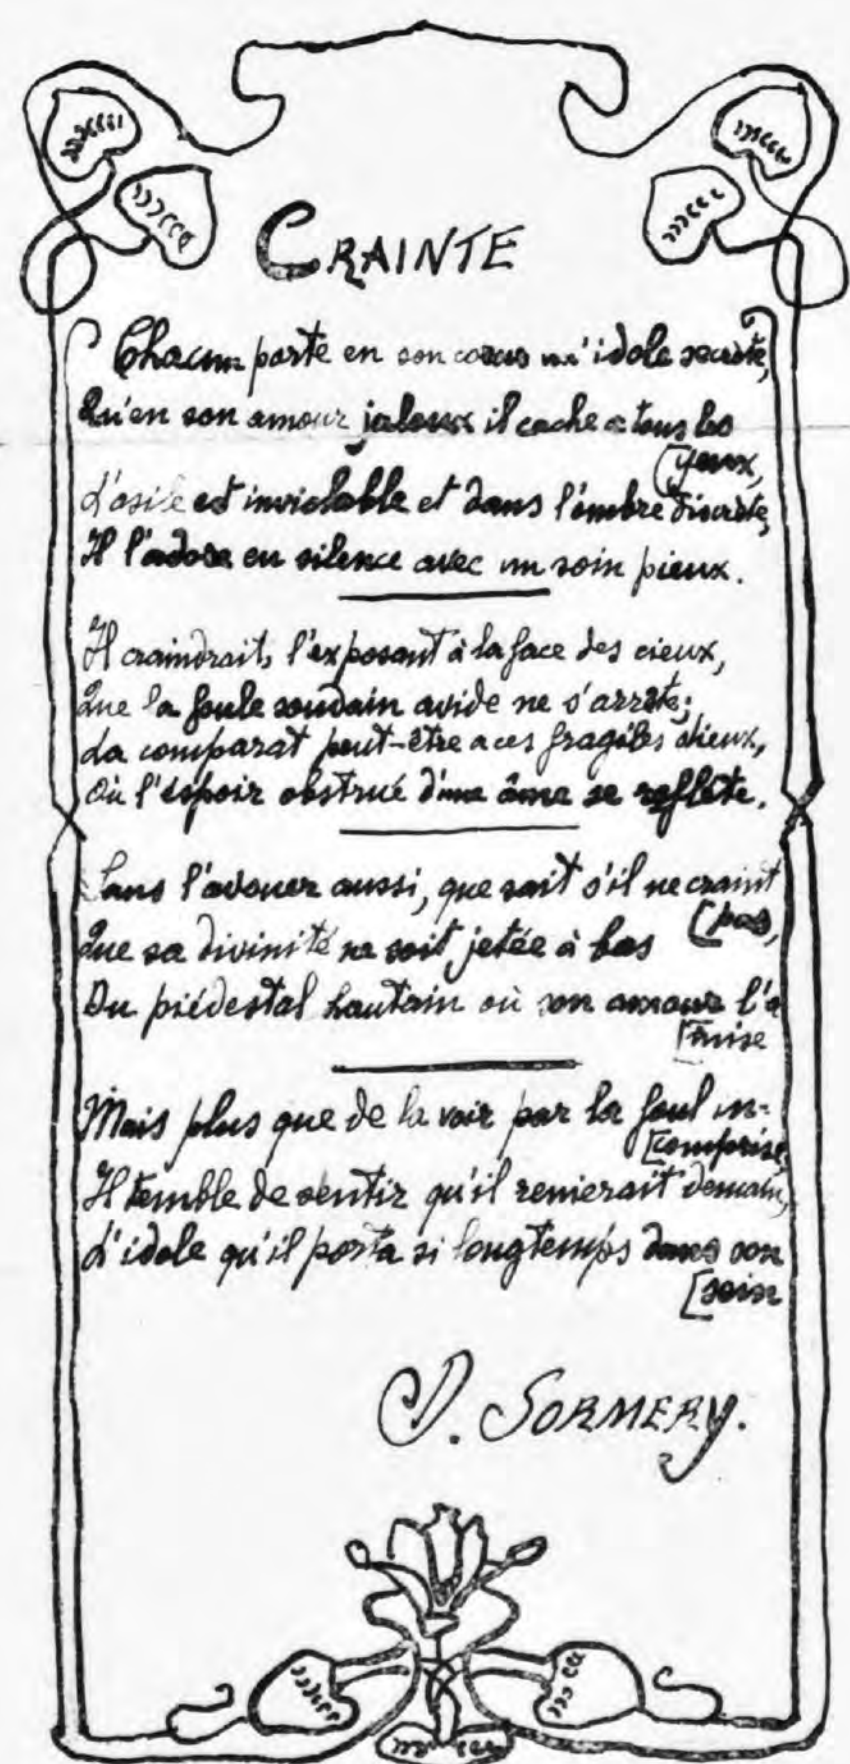 CRAINTE
Chacun porte en son cœur un' idole secrète,
Qu'en son amour jaloux il cache a tous les
(yeux,
L'asile est inviolable et dans l'ombre discrète,
Il l'adore en silence avec un soin pieux.
Il craindrait, l'exposant à la face des cieux,
Que la foule soudain avide ne s'arrête;
La comparat peut-être a ces fragiles dieux,
Où l'espoir obstrué d'une âme se reflète.
Sans l'avouer aussi, que sait s'il ne craint
[pas,
Que sa divinité ne soit jetée à bas
Du piédestal hautain où son amour l'a
[mise
Mais plus que de la voir par la foul in-
[comprise,
Il temble de sentir qu'il renierait demain,
L'idole qu'il porta si longtemps dans son
[sein
D. SORMERY.